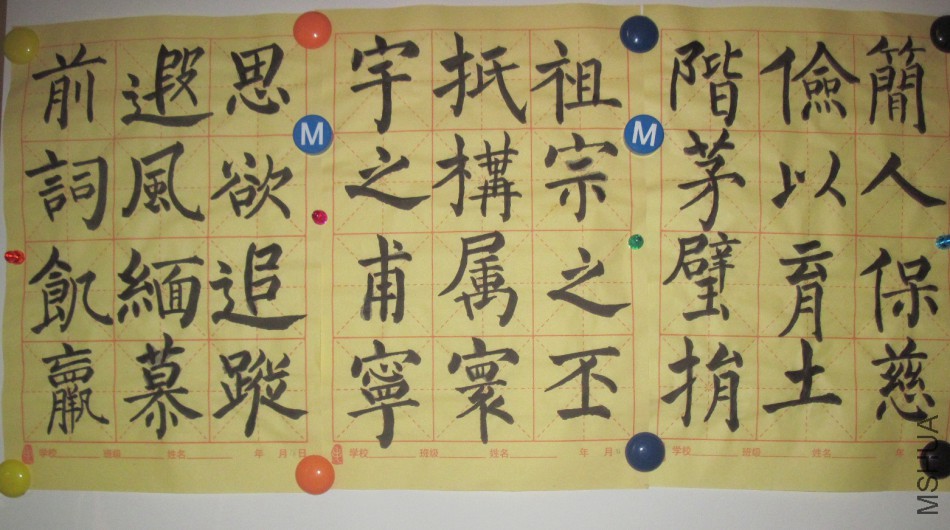 簡人保慈
儉以育土
階茅璧捐
祖宗之丕
抵構属寰
宇之甫寧
思欲追蹤
遐風緬慕
前詞飢羸
学校 班级 姓名 年 月 日
学校 班级 姓名 年 月
学校 班级 姓名 年
M
M
MSHUA